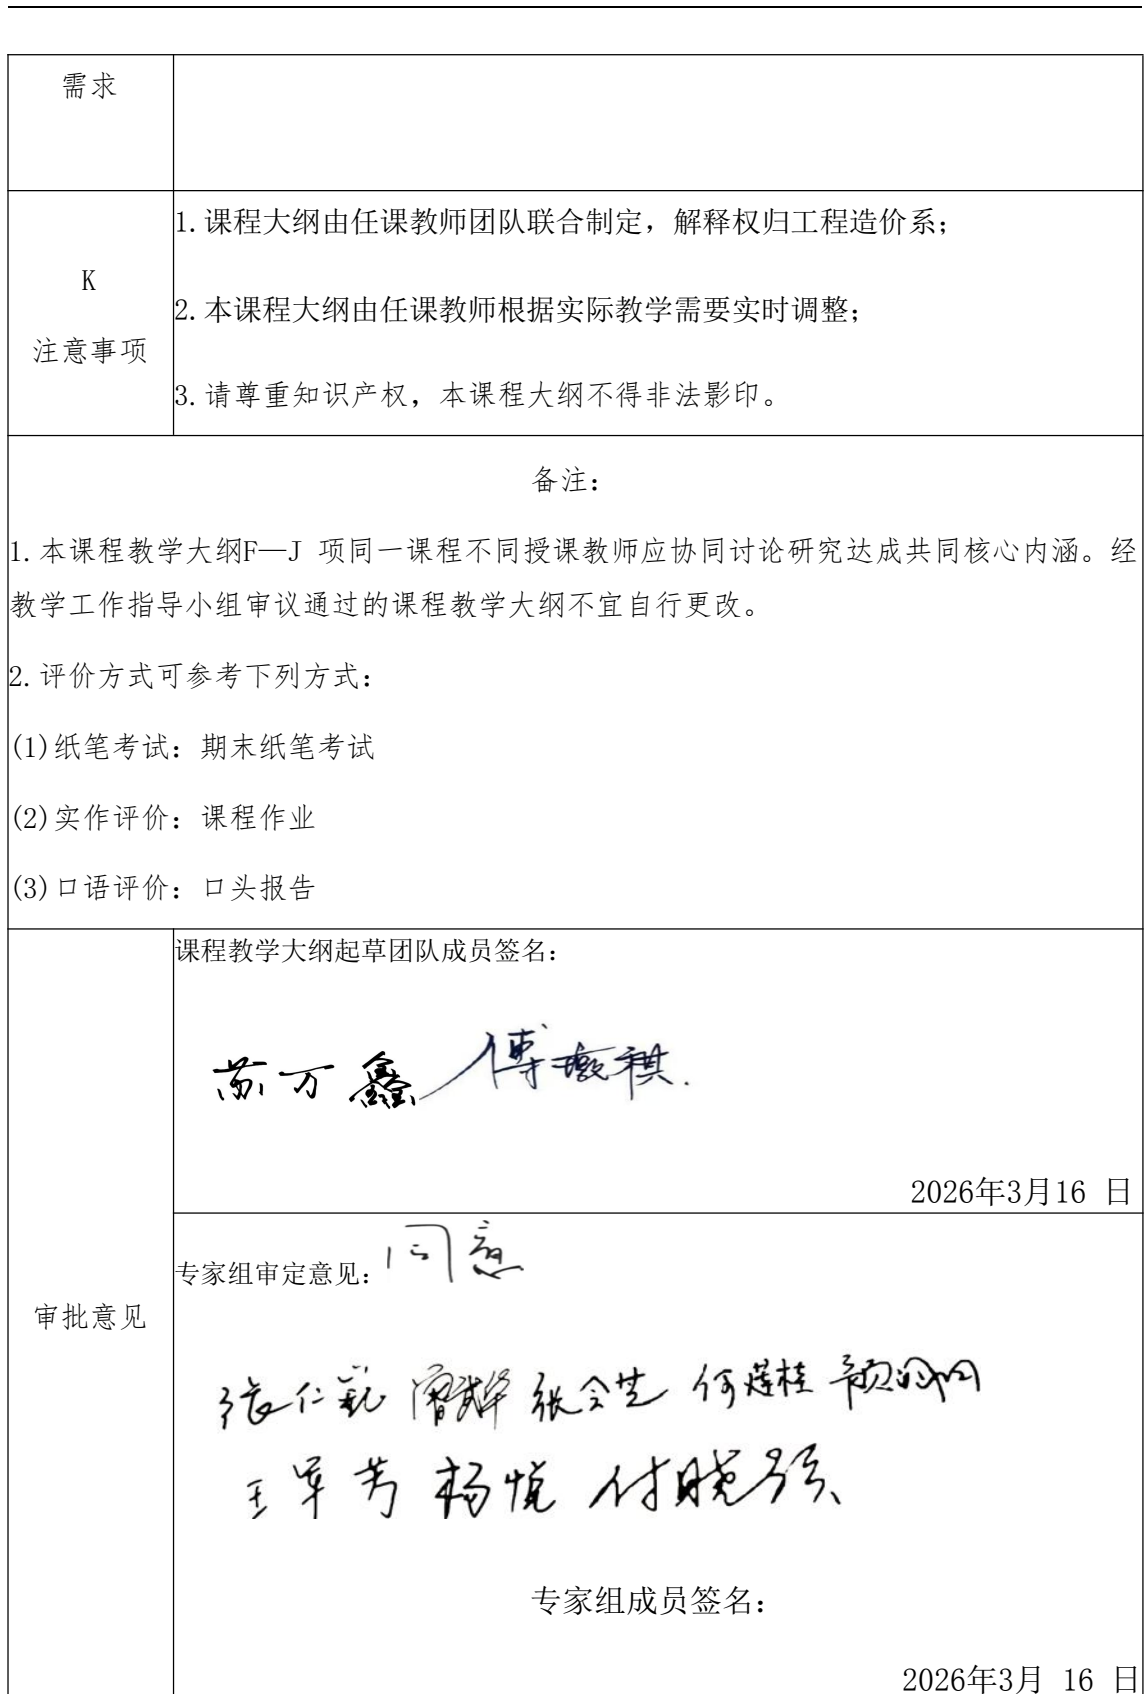 需求
K
注意事项
1.课程大纲由任课教师团队联合制定，解释权归工程造价系；
2.本课程大纲由任课教师根据实际教学需要实时调整；
3.请尊重知识产权，本课程大纲不得非法影印。
备注：
1.本课程教学大纲F—J 项同一课程不同授课教师应协同讨论研究达成共同核心内涵。经
教学工作指导小组审议通过的课程教学大纲不宜自行更改。
2.评价方式可参考下列方式：
(1)纸笔考试：期末纸笔考试
(2)实作评价：课程作业
(3)口语评价：口头报告
审批意见
课程教学大纲起草团队成员签名：
苏万鑫
2026年3月16 日
专家组审定意见：同意
张仁 何莲桂
王军芳 杨悦 付晓
专家组成员签名：
2026年3月 16 日